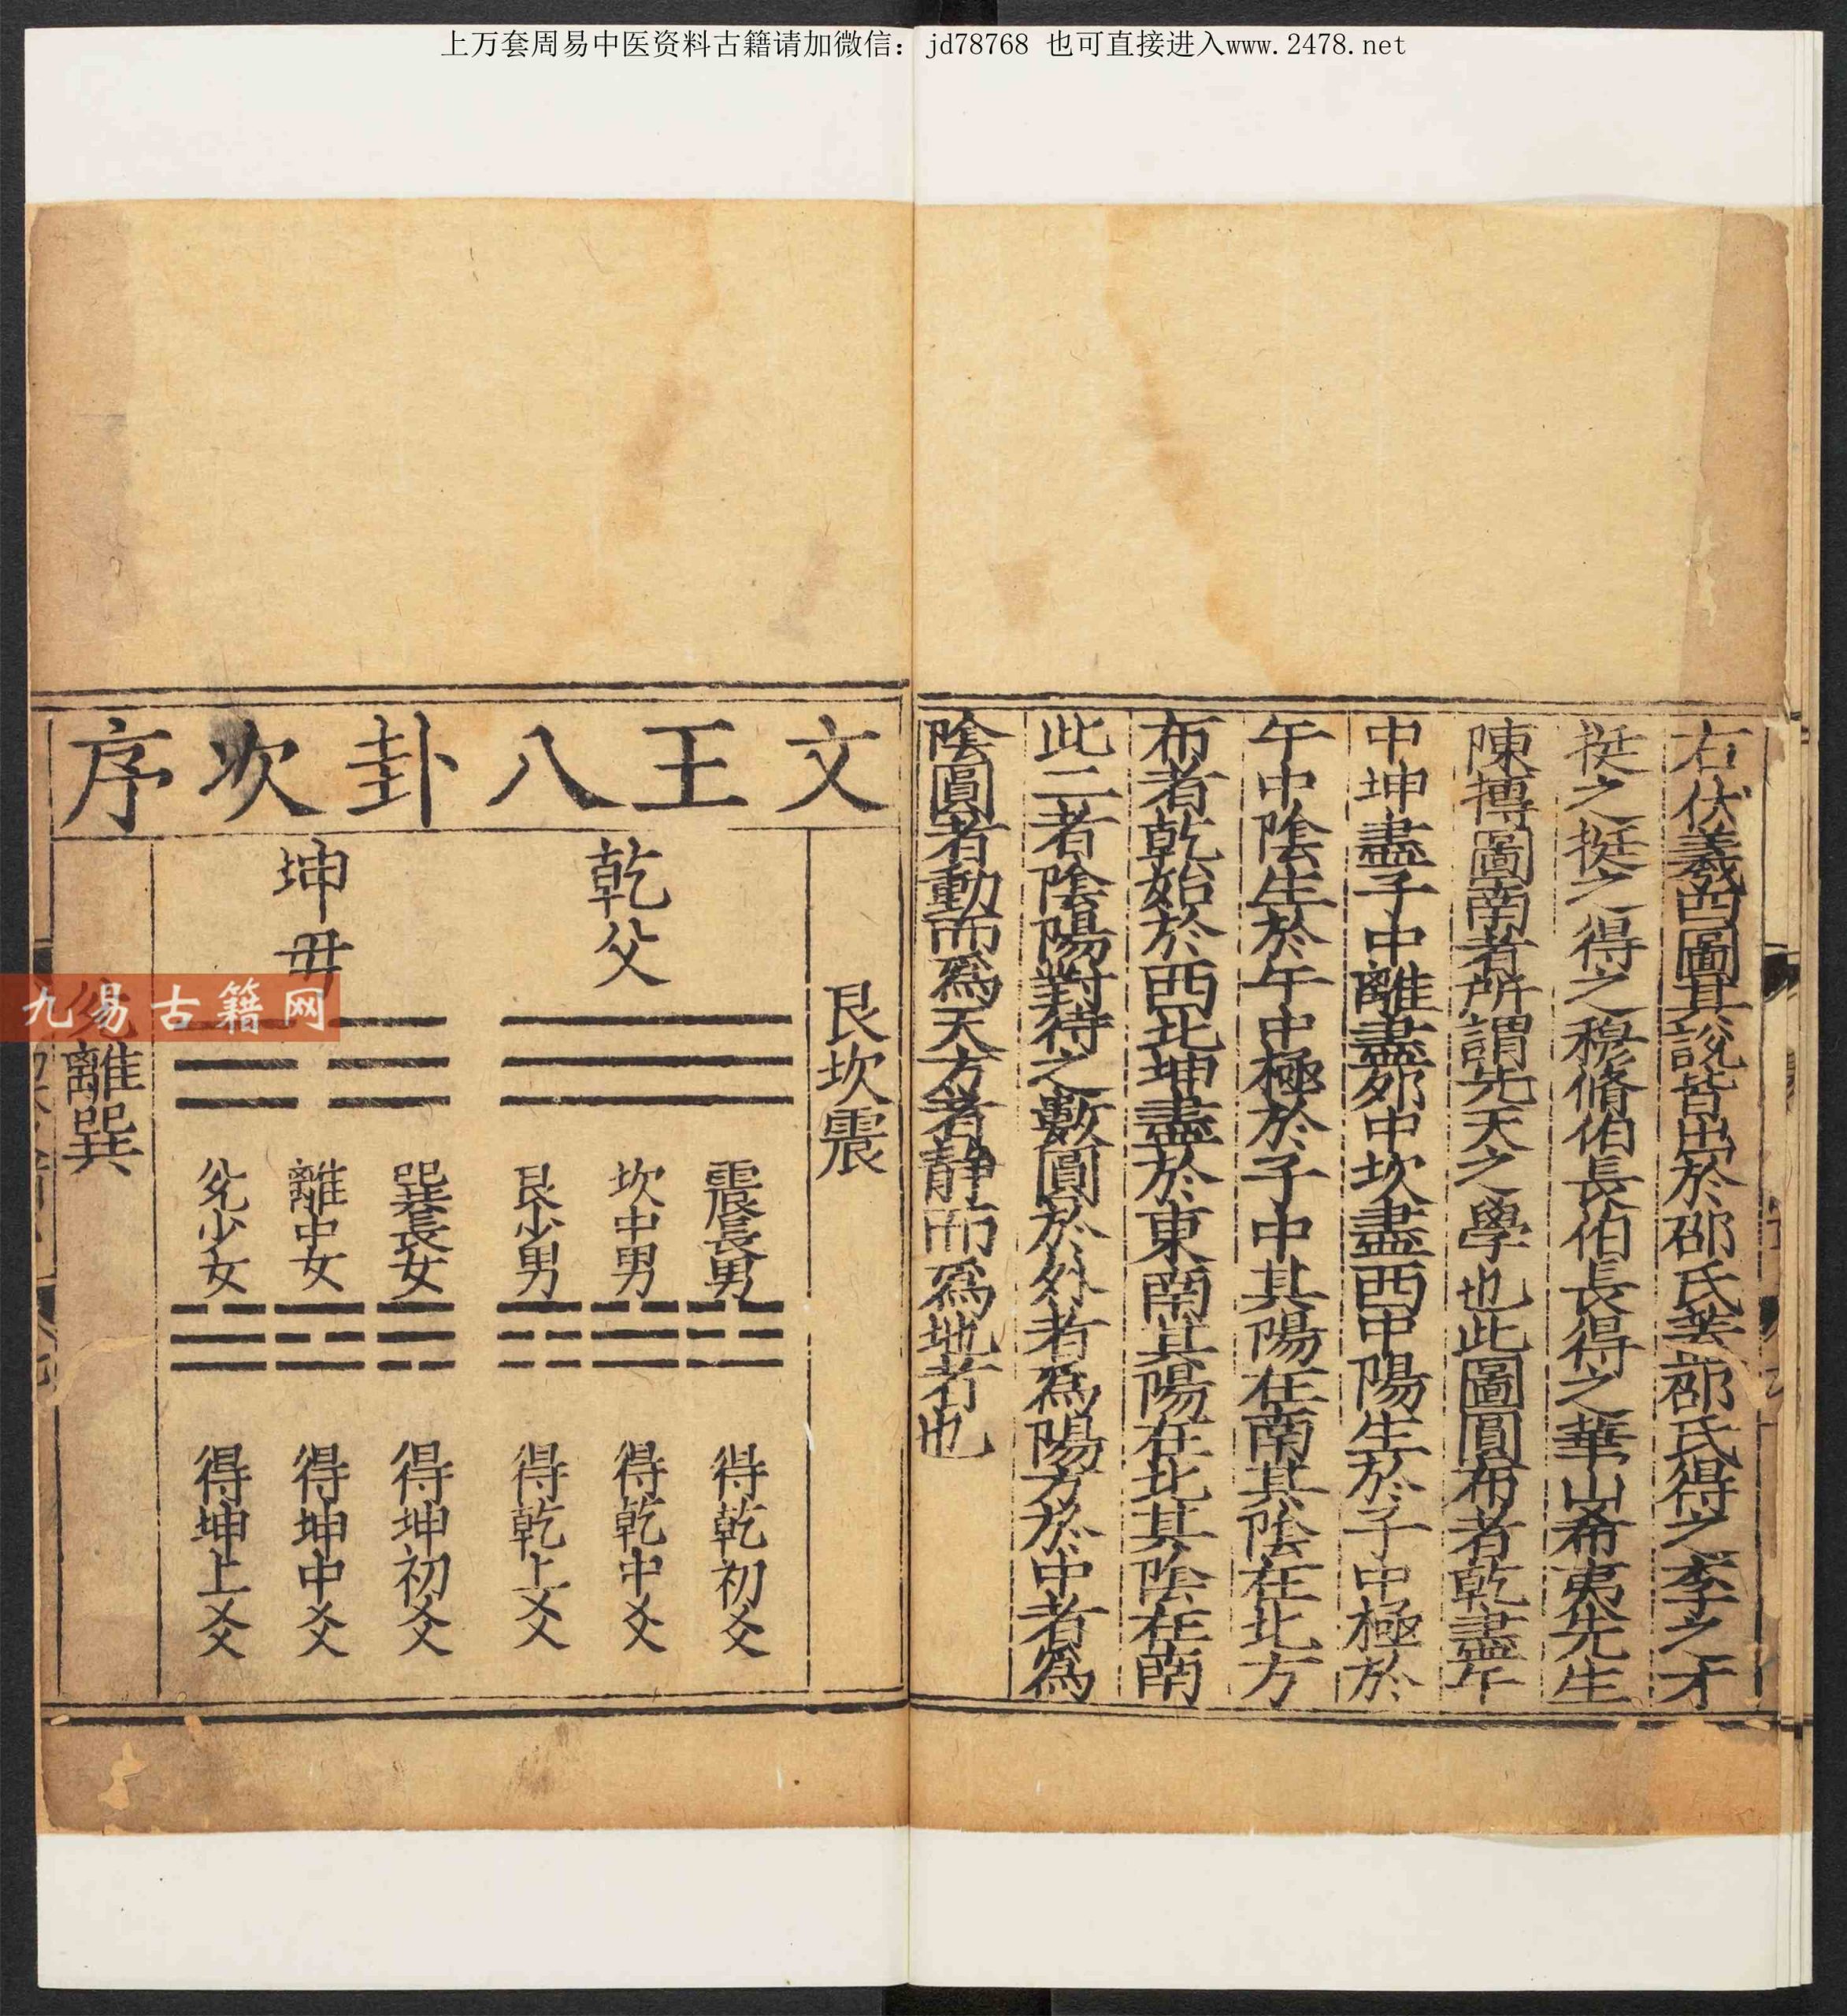 上万套周易中医资料古籍请加微信：jd78768 也可直接进入www.2478.net
右伏羲四圖其說皆出於邵氏盖邵氏得之李之才
挺之挺之得之穆脩伯長伯長得之華山希夷先生
陳摶圖南者所謂先天之學也此圖圓布者乾盡午
中坤盡子中離盡夘中坎盡西中陽生於子中極於
午中陰生於午中極於子中其陽在南其陰在北方
布者乾始於西北坤盡於東南其陽在北其陰在南
此二者陰陽對待之數圓於外者爲陽方於中者爲
陰圓者動而爲天方者静而爲地者也
文王八卦次序
艮坎震
乾父
坤毋
震長男
坎中男
艮少男
巽長女
離中女
兊少女
得乾初爻
得乾中爻
得乾上爻
得坤初爻
得坤中爻
得坤上爻
兊離巽
九易古籍网